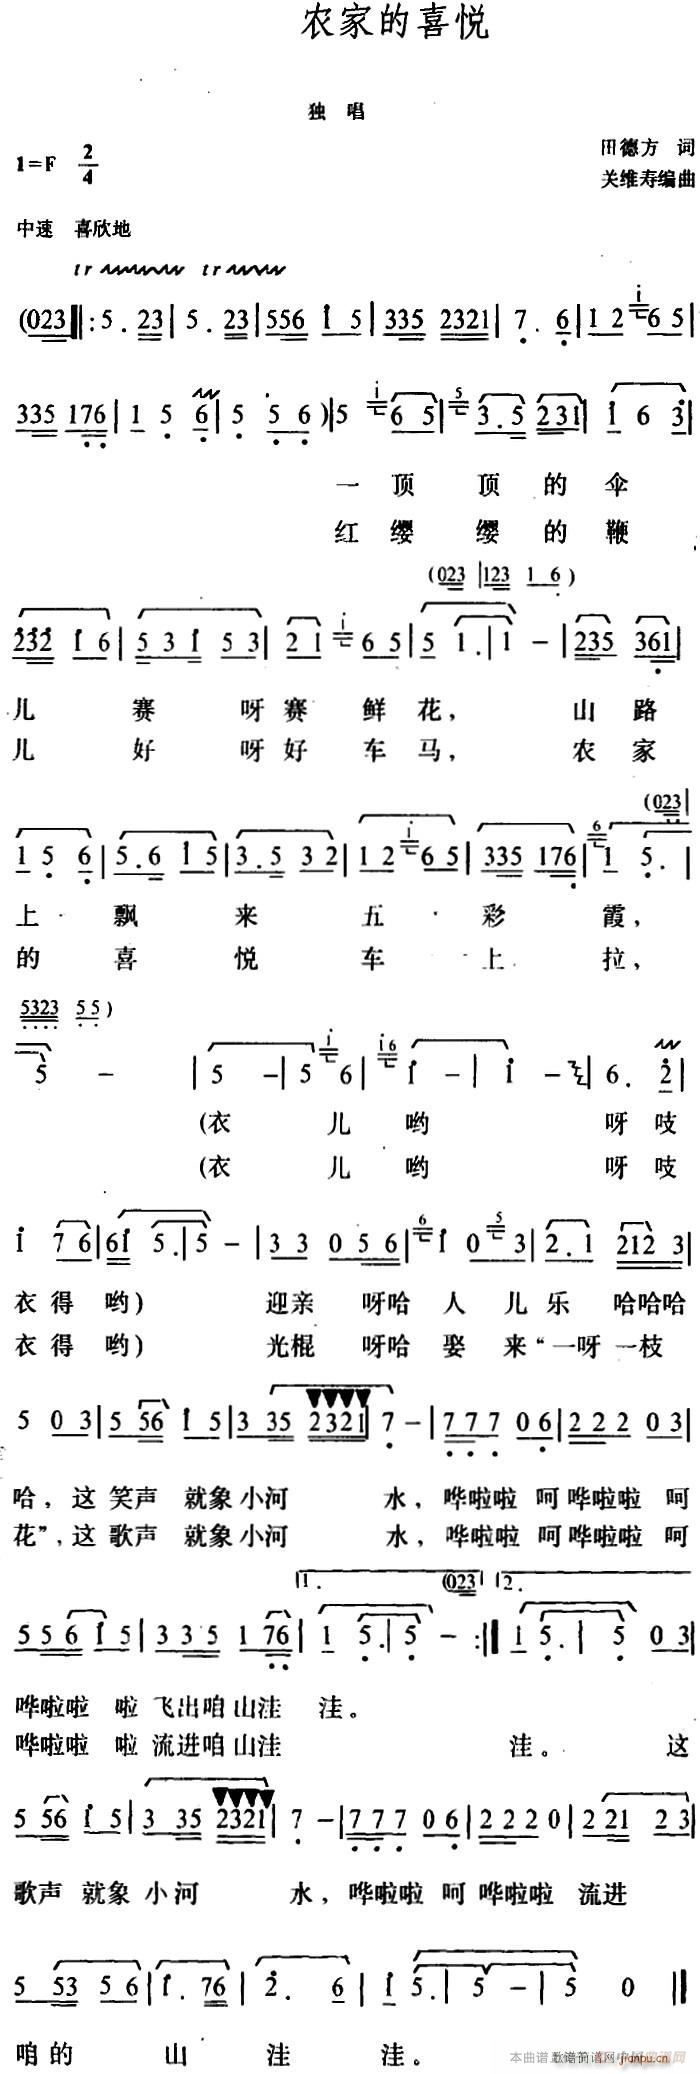 农家的喜悦
独 唱
1=F 2/4
田德方 词
关维寿编曲
中速 喜欣地
tr tr
(023‖:5.23|5.23|556 i 5|335 2321|7. 6|1 2 i 65|
335 176|1 5 6|5 5 6)|5 i 65|5 3.5 231|i 6 3|
一 顶 顶 的 伞
红 缨 缨 的 鞭
(023|123 1 6)
232 i6|53i 53|21 i 65|5 1.|1 -|235 361|
儿 赛 呀赛 鲜 花, 山 路
儿 好 呀好 车 马, 农 家
(023|
1 5 6|5.6 i5|3.5 32|12 i 65|335 176|6 1 5.|
上 飘 来 五 彩 霞,
的 喜 悦 车 上 拉,
5323 55)
5 -|5 -|5 i 6|i6 i -|i -|6. 2|
(衣 儿 哟 呀吱
(衣 儿 哟 呀吱
i 76|6i 5.|5 -|33 056|6 i 05 3|2.1 2123|
衣得 哟) 迎亲 呀哈 人 儿 乐 哈哈哈
衣得 哟) 光棍 呀哈 娶 来“一呀 一枝
5 03|556 i5|335 2321|7 -|777 06|222 03|
哈, 这 笑声 就象 小河 水, 哗啦啦 呵 哗啦啦 呵
花”,这 歌声 就象 小河 水, 哗啦啦 呵 哗啦啦 呵
1. (023 2.
556i5|335 176|1 5.|5 -:‖1 5.|5 03|
哗啦啦 啦 飞出咱山洼 洼。
哗啦啦 啦 流进咱山洼 洼。 这
556 i5|335 2321|7 -|777 06|2220|221 23|
歌声 就象 小河 水, 哗啦啦 呵 哗啦啦 流进
5 53 56|i. 76|2. 6|i 5.|5 -|5 0‖
咱的 山 洼 洼。